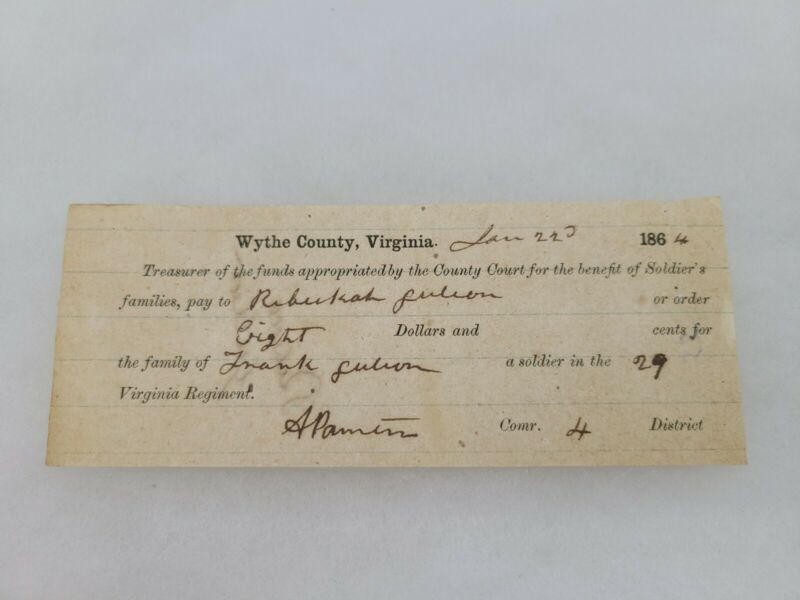 Wythe County, Virginia. Jan 22d 1864
Treasurer of the funds appropriated by the County Court for the benefit of Soldier's
families, pay to Rebeckah Gulion or order
Eight Dollars and cents for
the family of Frank Gulion a soldier in the 29
Virginia Regiment.
Comr. 4 District